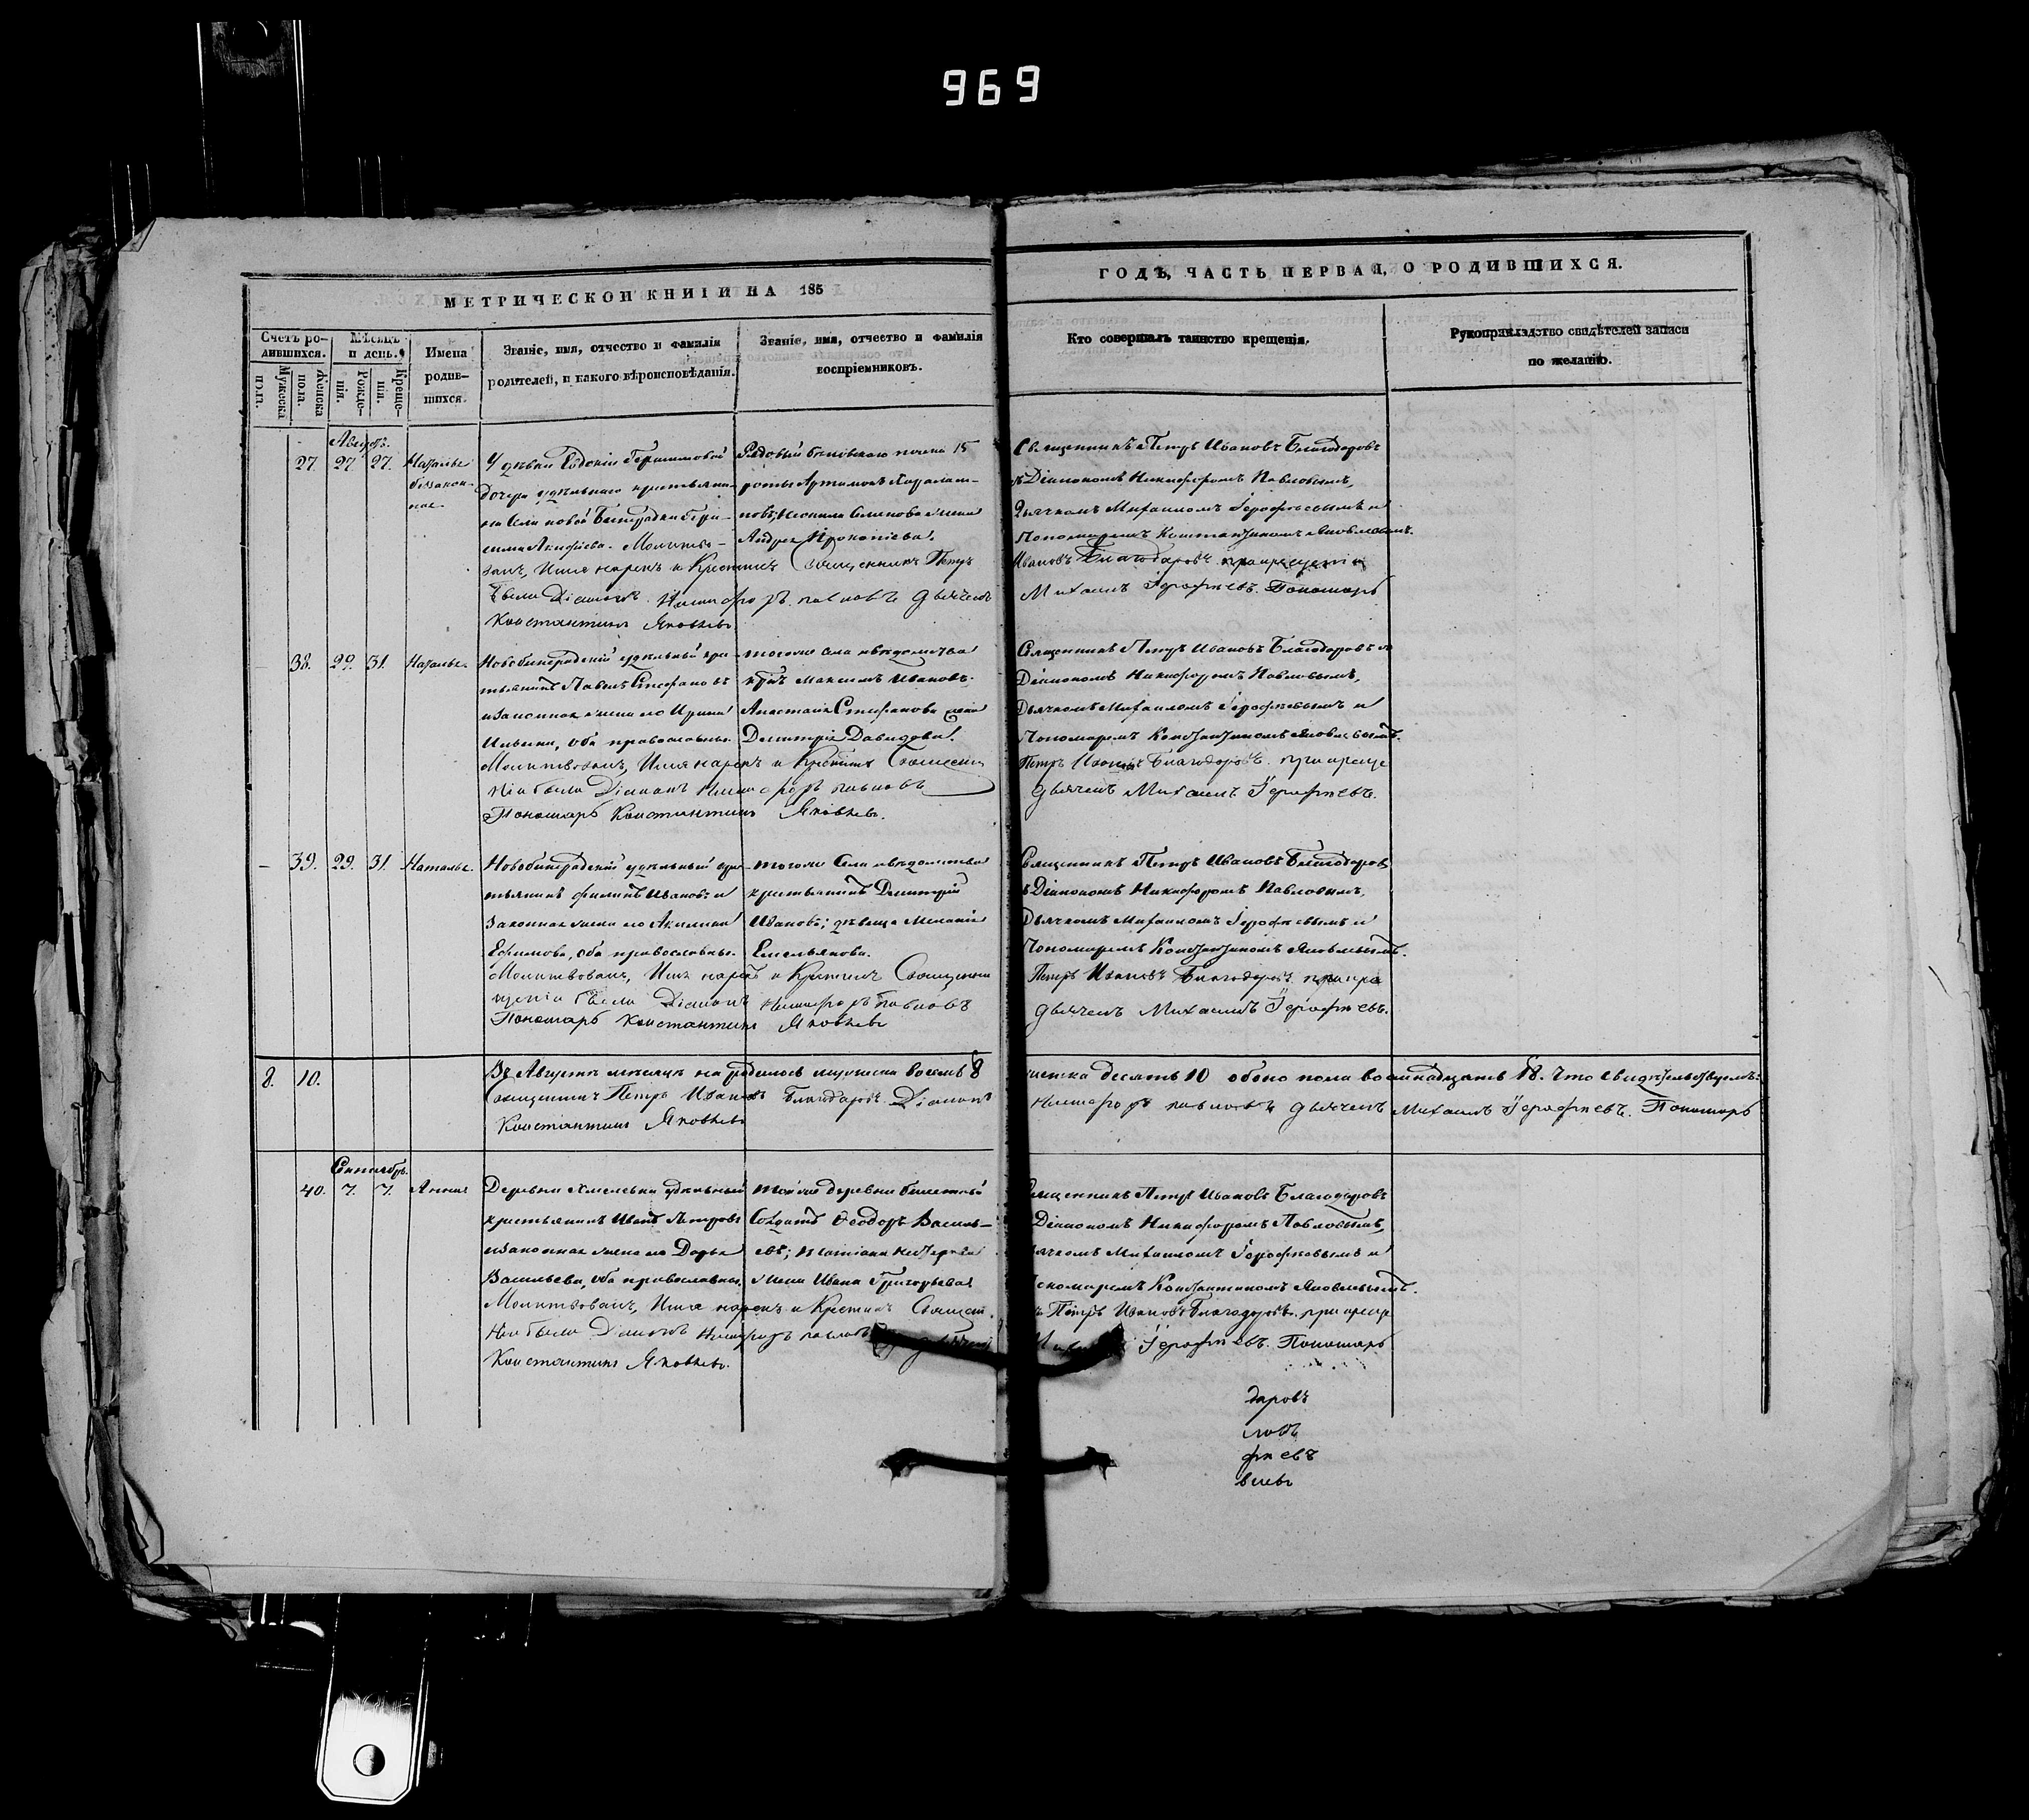 969
МЕТРИЧЕСКОЙ КНИГИ НА 185
ГОДЪ, ЧАСТЬ ПЕРВАЯ, О РОДИВШИХСЯ.
Счетъ ро-
дившихся.
Мужеска
пола.
Женска
пола.
Мѣсяцъ
и день.
Рожде-
нія.
Креще-
нія.
Имена
родив-
шихся.
Званіе, имя, отчество и фамилія
родителей, и какого вѣроисповѣданія.
Званіе, имя, отчество и фамилія
воспріемниковъ.
Кто совершалъ таинство крещенія.
Рукоприкладство свидѣтелей записи
по желанію.
Августъ.
27. 27. 27. Наталья
незакон-
ная
У дѣвки Евдокіи Герасимовой
дочери удѣльнаго крестьяни-
на Села новой Бинарадки Гера-
сима
Молитво-
валъ, Имя нарекъ и Крестилъ Священникъ Петръ
были Діаконъ Никифоръ Павловъ Дьячекъ
Константинъ Яковлевъ
Рядовый
роты Артамонъ
жена
Андрея Прокопіева.
Священникъ Петръ Ивановъ Благодаровъ
съ Діакономъ Никифоромъ Павловымъ,
Дьячкомъ Михаиломъ Іерофѣевымъ и
Пономаремъ Константиномъ Яковлевымъ.
Ивановъ Благодаровъ при крещеніи
Михаилъ Іерофѣевъ. Пономарь
38. 29. 31. Наталья
Новобинарадскій удѣльный кре-
стьянинъ Павелъ Стефановъ
и законная жена его Ирина
Ильина, оба православные.
Молитвовалъ, Имя нарекъ и Крестилъ Священни
ніи были Діаконъ Никифоръ Павловъ
Пономарь Константинъ Яковлевъ.
тогоже села и вѣдомства
Максимъ Ивановъ.
Анастасія Стефанова жена
Димитрія Давидова.
Священникъ Петръ Ивановъ Благодаровъ съ
Діакономъ Никифоромъ Павловымъ,
Дьячкомъ Михаиломъ Іерофѣевымъ и
Пономаремъ Константиномъ Яковлевымъ.
Петръ Ивановъ Благодаровъ. при креще
Дьячекъ Михаилъ Іерофѣевъ.
39. 29. 31. Наталья.
Новобинарадскій удѣльный кре-
стьянинъ Филипъ Ивановъ и
законная жена его Акилина
Ефимова, оба православные.
Молитвовалъ, Имя нарекъ и Крестилъ Священни
щеніи были Діаконъ Никифоръ Павловъ
Пономарь Константинъ Яковлевъ
тогоже Села и вѣдомства
крестьянинъ Димитрій
Ивановъ; дѣвица Меланія
Емельянова.
Священникъ Петръ Ивановъ Благодаровъ
съ Діакономъ Никифоромъ Павловымъ,
Дьячкомъ Михаиломъ Іерофѣевымъ и
Пономаремъ Константиномъ Яковлевымъ.
Петръ Ивановъ Благодаровъ при кре
Дьячекъ Михаилъ Іерофѣевъ.
8. 10.
Въ Августѣ мѣсяцѣ народилось мужеска восемь 8
женска десять 10 обоего пола восемнадцать 18. Что свидѣтельствуемъ:
Священникъ Петръ Ивановъ Благодаровъ. Діаконъ
Никифоръ Павловъ Дьячекъ Михаилъ Іерофѣевъ. Пономарь
Константинъ Яковлевъ
Сентябрь.
40. 7. 7. Анна
Деревни Хмелевки удѣльный
крестьянинъ Иванъ Петровъ
и законная жена его Дарья
Васильева, оба православны.
Молитвовалъ, Имя нарекъ и Крестилъ Священ.
ніи были Діаконъ Никифоръ Павловъ Дьячекъ
Константинъ Яковлевъ.
той же деревни билетный
Солдатъ Ѳеодоръ Василь-
евъ;
жена Ивана Григорьева.
Священникъ Петръ Ивановъ Благодаровъ
Діакономъ Никифоромъ Павловымъ,
Дьячкомъ Михаиломъ Іерофѣевымъ и
Пономаремъ Константиномъ Яковлевымъ.
ъ Петръ Ивановъ Благодаровъ. при креще
Іерофѣевъ. Пономарь
даровъ
ловъ
фѣевъ
влевъ